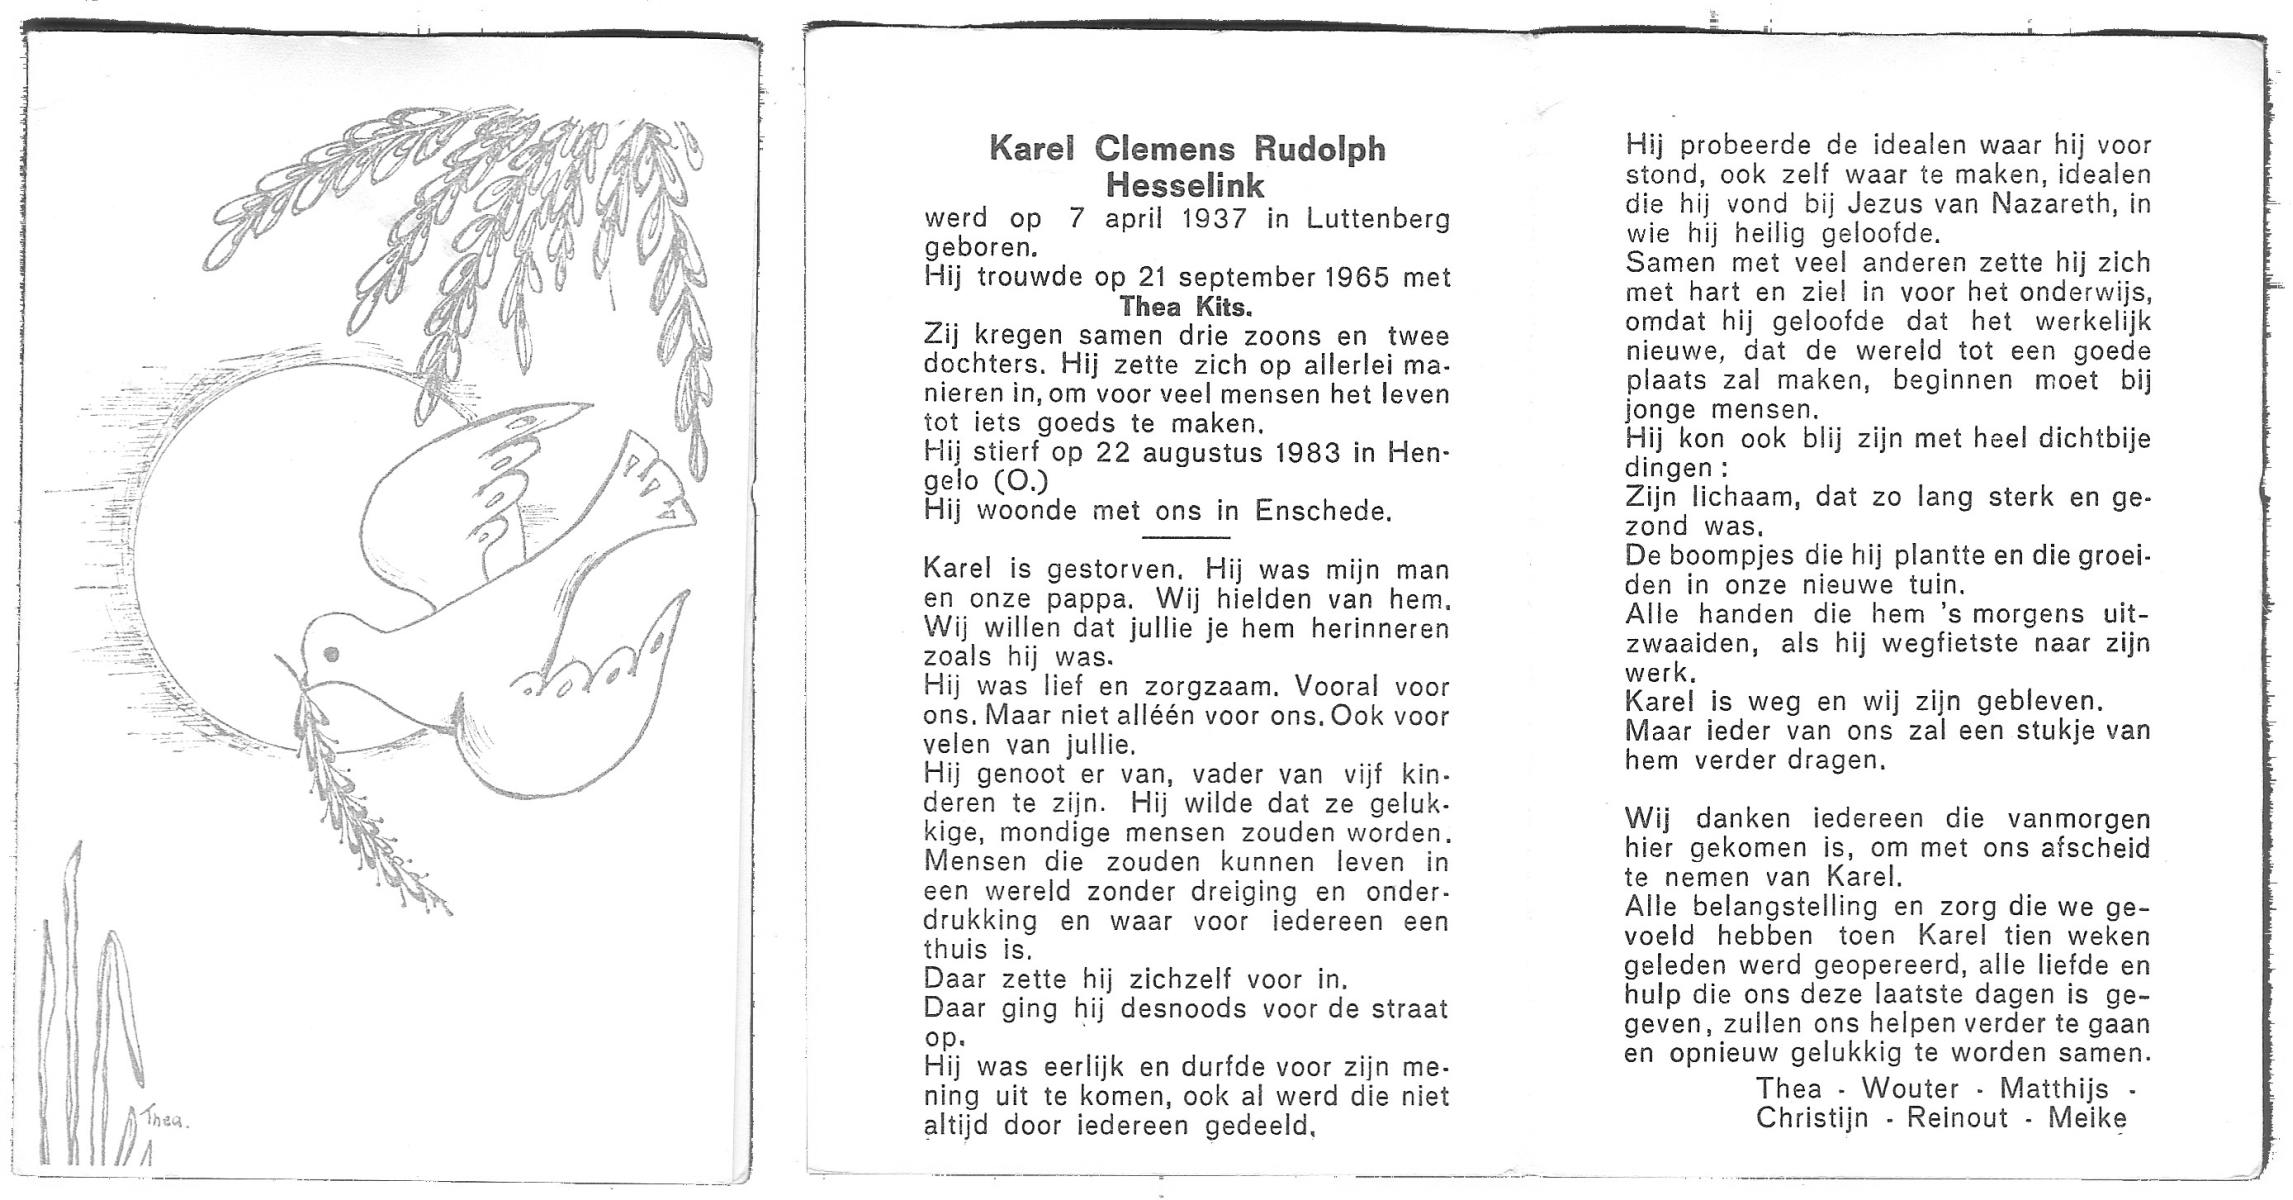 Thea.
Karel Clemens Rudolph
Hesselink
werd op 7 april 1937 in Luttenberg
geboren.
Hij trouwde op 21 september 1965 met
Thea Kits.
Zij kregen samen drie zoons en twee
dochters. Hij zette zich op allerlei ma-
nieren in, om voor veel mensen het leven
tot iets goeds te maken.
Hij stierf op 22 augustus 1983 in Hen-
gelo (O.)
Hij woonde met ons in Enschede.
Karel is gestorven. Hij was mijn man
en onze pappa. Wij hielden van hem.
Wij willen dat jullie je hem herinneren
zoals hij was.
Hij was lief en zorgzaam. Vooral voor
ons. Maar niet alléén voor ons. Ook voor
velen van jullie.
Hij genoot er van, vader van vijf kin-
deren te zijn. Hij wilde dat ze geluk-
kige, mondige mensen zouden worden.
Mensen die zouden kunnen leven in
een wereld zonder dreiging en onder-
drukking en waar voor iedereen een
thuis is.
Daar zette hij zichzelf voor in.
Daar ging hij desnoods voor de straat
op.
Hij was eerlijk en durfde voor zijn me-
ning uit te komen, ook al werd die niet
altijd door iedereen gedeeld.
Hij probeerde de idealen waar hij voor
stond, ook zelf waar te maken, idealen
die hij vond bij Jezus van Nazareth, in
wie hij heilig geloofde.
Samen met veel anderen zette hij zich
met hart en ziel in voor het onderwijs,
omdat hij geloofde dat het werkelijk
nieuwe, dat de wereld tot een goede
plaats zal maken, beginnen moet bij
jonge mensen.
Hij kon ook blij zijn met heel dichtbije
dingen :
Zijn lichaam, dat zo lang sterk en ge-
zond was.
De boompjes die hij plantte en die groei-
den in onze nieuwe tuin.
Alle handen die hem 's morgens uit-
zwaaiden, als hij wegfietste naar zijn
werk.
Karel is weg en wij zijn gebleven.
Maar ieder van ons zal een stukje van
hem verder dragen.
Wij danken iedereen die vanmorgen
hier gekomen is, om met ons afscheid
te nemen van Karel.
Alle belangstelling en zorg die we ge-
voeld hebben toen Karel tien weken
geleden werd geopereerd, alle liefde en
hulp die ons deze laatste dagen is ge-
geven, zullen ons helpen verder te gaan
en opnieuw gelukkig te worden samen.
Thea - Wouter - Matthijs -
Christijn - Reinout - Meike